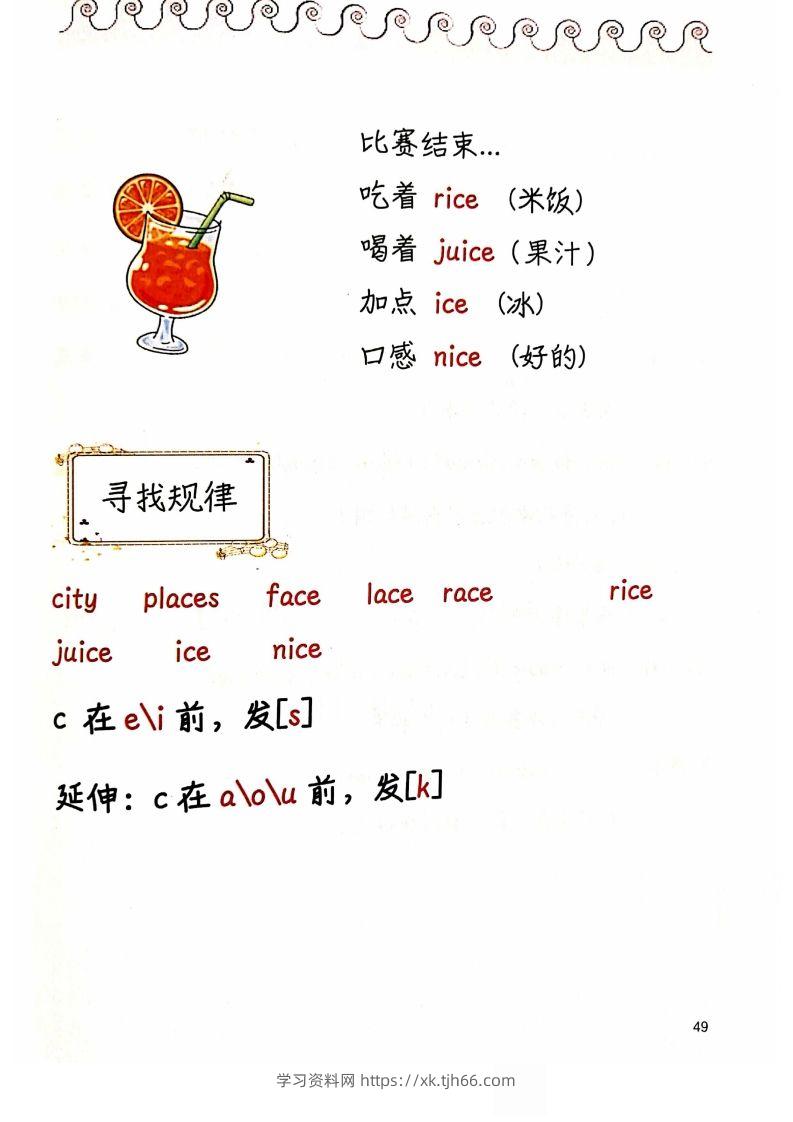 比赛结束...
吃着 rice （米饭）
喝着 juice（果汁）
加点 ice （冰）
口感 nice （好的）
寻找规律
city places face lace race rice
juice ice nice
c 在 e\i 前，发[s]
延伸：c 在 a\o\u 前，发[k]
49
学习资料网 https://xk.tjh66.com